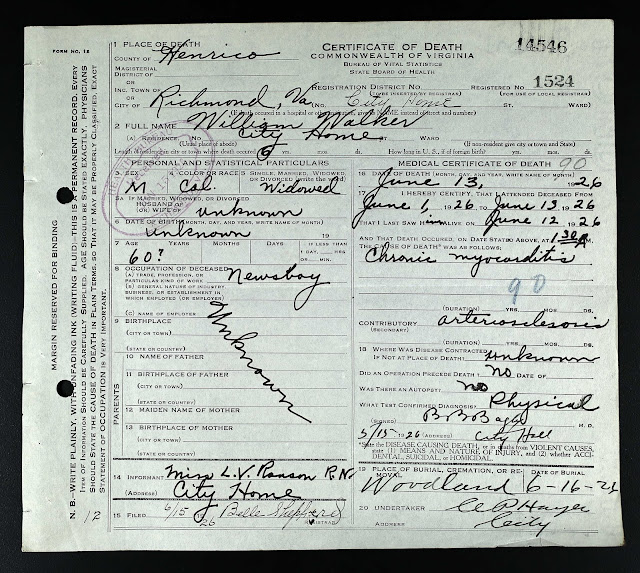 FORM NO. 12
1 PLACE OF DEATH
COUNTY OF Henrico
MAGISTERIAL
DISTRICT OF
OR
INC. TOWN OF
OR
CITY OF Richmond, Va
CERTIFICATE OF DEATH
COMMONWEALTH OF VIRGINIA
BUREAU OF VITAL STATISTICS
STATE BOARD OF HEALTH
14546
REGISTRATION DISTRICT NO.
(TO BE INSERTED BY REGISTRAR)
REGISTERED NO. 1524
(FOR USE OF LOCAL REGISTRAR)
(NO. City Home ST. WARD)
(If death occurred in a hospital or other institution, give its NAME instead of street and number)
2 FULL NAME William Walker
(A) RESIDENCE. No. City Home St. Ward
(Usual place of abode) (If non-resident give city or town and state)
Length of residence in city or town where death occurred yrs. mos. ds. How long in U. S., if of foreign birth? yrs. mos. ds.
PERSONAL AND STATISTICAL PARTICULARS
3 SEX
M
4 COLOR OR RACE
Col.
5 SINGLE, MARRIED, WIDOWED
OR DIVORCED (write the word)
Widowed
5A IF MARRIED, WIDOWED OR DIVORCED
HUSBAND OF
(OR) WIFE OF unknown
6 DATE OF BIRTH (MONTH, DAY, AND YEAR, WRITE NAME OF MONTH)
unknown 19
7 AGE YEARS MONTHS DAYS IF LESS THAN
1 DAY, HRS.
OR MIN.
60?
8 OCCUPATION OF DECEASED
(A) TRADE, PROFESSION, OR
PARTICULAR KIND OF WORK
Newsboy
(B) GENERAL NATURE OF INDUSTRY,
BUSINESS, OR ESTABLISHMENT IN
WHICH EMPLOYED (OR EMPLOYER)
(C) NAME OF EMPLOYER
Unknown
9 BIRTHPLACE
(CITY OR TOWN)
(STATE OR COUNTRY)
PARENTS
10 NAME OF FATHER
11 BIRTHPLACE OF FATHER
(CITY OR TOWN)
(STATE OR COUNTRY)
12 MAIDEN NAME OF MOTHER
13 BIRTHPLACE OF MOTHER
(CITY OR TOWN)
(STATE OR COUNTRY)
14 INFORMANT Miss L.V. Ranson R.N.
(ADDRESS) City Home
15 FILED 6/15 1926 Belle Shepherd
REGISTRAR
MEDICAL CERTIFICATE OF DEATH 90
16 DATE OF DEATH (MONTH, DAY, AND YEAR, WRITE NAME OF MONTH)
June 13, 1926
17 I HEREBY CERTIFY, THAT I ATTENDED DECEASED FROM
June 1, 1926 TO June 13 1926
THAT I LAST SAW him ALIVE ON June 12 1926
AND THAT DEATH OCCURRED, ON DATE STATED ABOVE, AT 1:30 A M.
THE CAUSE OF DEATH WAS AS FOLLOWS:
Chronic myocarditis
90
(DURATION) YRS. MOS. DS.
CONTRIBUTORY arteriosclerosis
(SECONDARY)
(DURATION) YRS. MOS. DS.
18 WHERE WAS DISEASE CONTRACTED
IF NOT AT PLACE OF DEATH? unknown
DID AN OPERATION PRECEDE DEATH? no DATE OF
WAS THERE AN AUTOPSY? no
WHAT TEST CONFIRMED DIAGNOSIS? Physical
(SIGNED) M. D.
1926 (ADDRESS) City Hall
*State the DISEASE CAUSING DEATH, or in deaths from VIOLENT CAUSES, state (1) MEANS AND NATURE OF INJURY, and (2) whether ACCIDENTAL, SUICIDAL, or HOMICIDAL.
19 PLACE OF BURIAL, CREMATION, OR REMOVAL DATE OF BURIAL
Woodland 6-16-26
20 UNDERTAKER
(ADDRESS) City
MARGIN RESERVED FOR BINDING
N. B.—WRITE PLAINLY, WITH UNFADING INK (WRITING FLUID)—THIS IS A PERMANENT RECORD. EVERY
ITEM OF INFORMATION SHOULD BE CAREFULLY SUPPLIED. AGE SHOULD BE STATED EXACTLY. PHYSICIANS
SHOULD STATE THE CAUSE OF DEATH IN PLAIN TERMS, SO THAT IT MAY BE PROPERLY CLASSIFIED. EXACT
STATEMENT OF OCCUPATION IS VERY IMPORTANT.
12